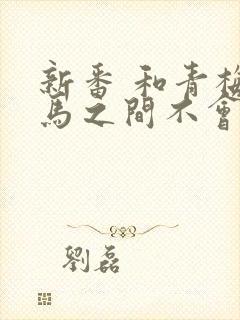 新番 和青梅
馬之間不會
劉磊